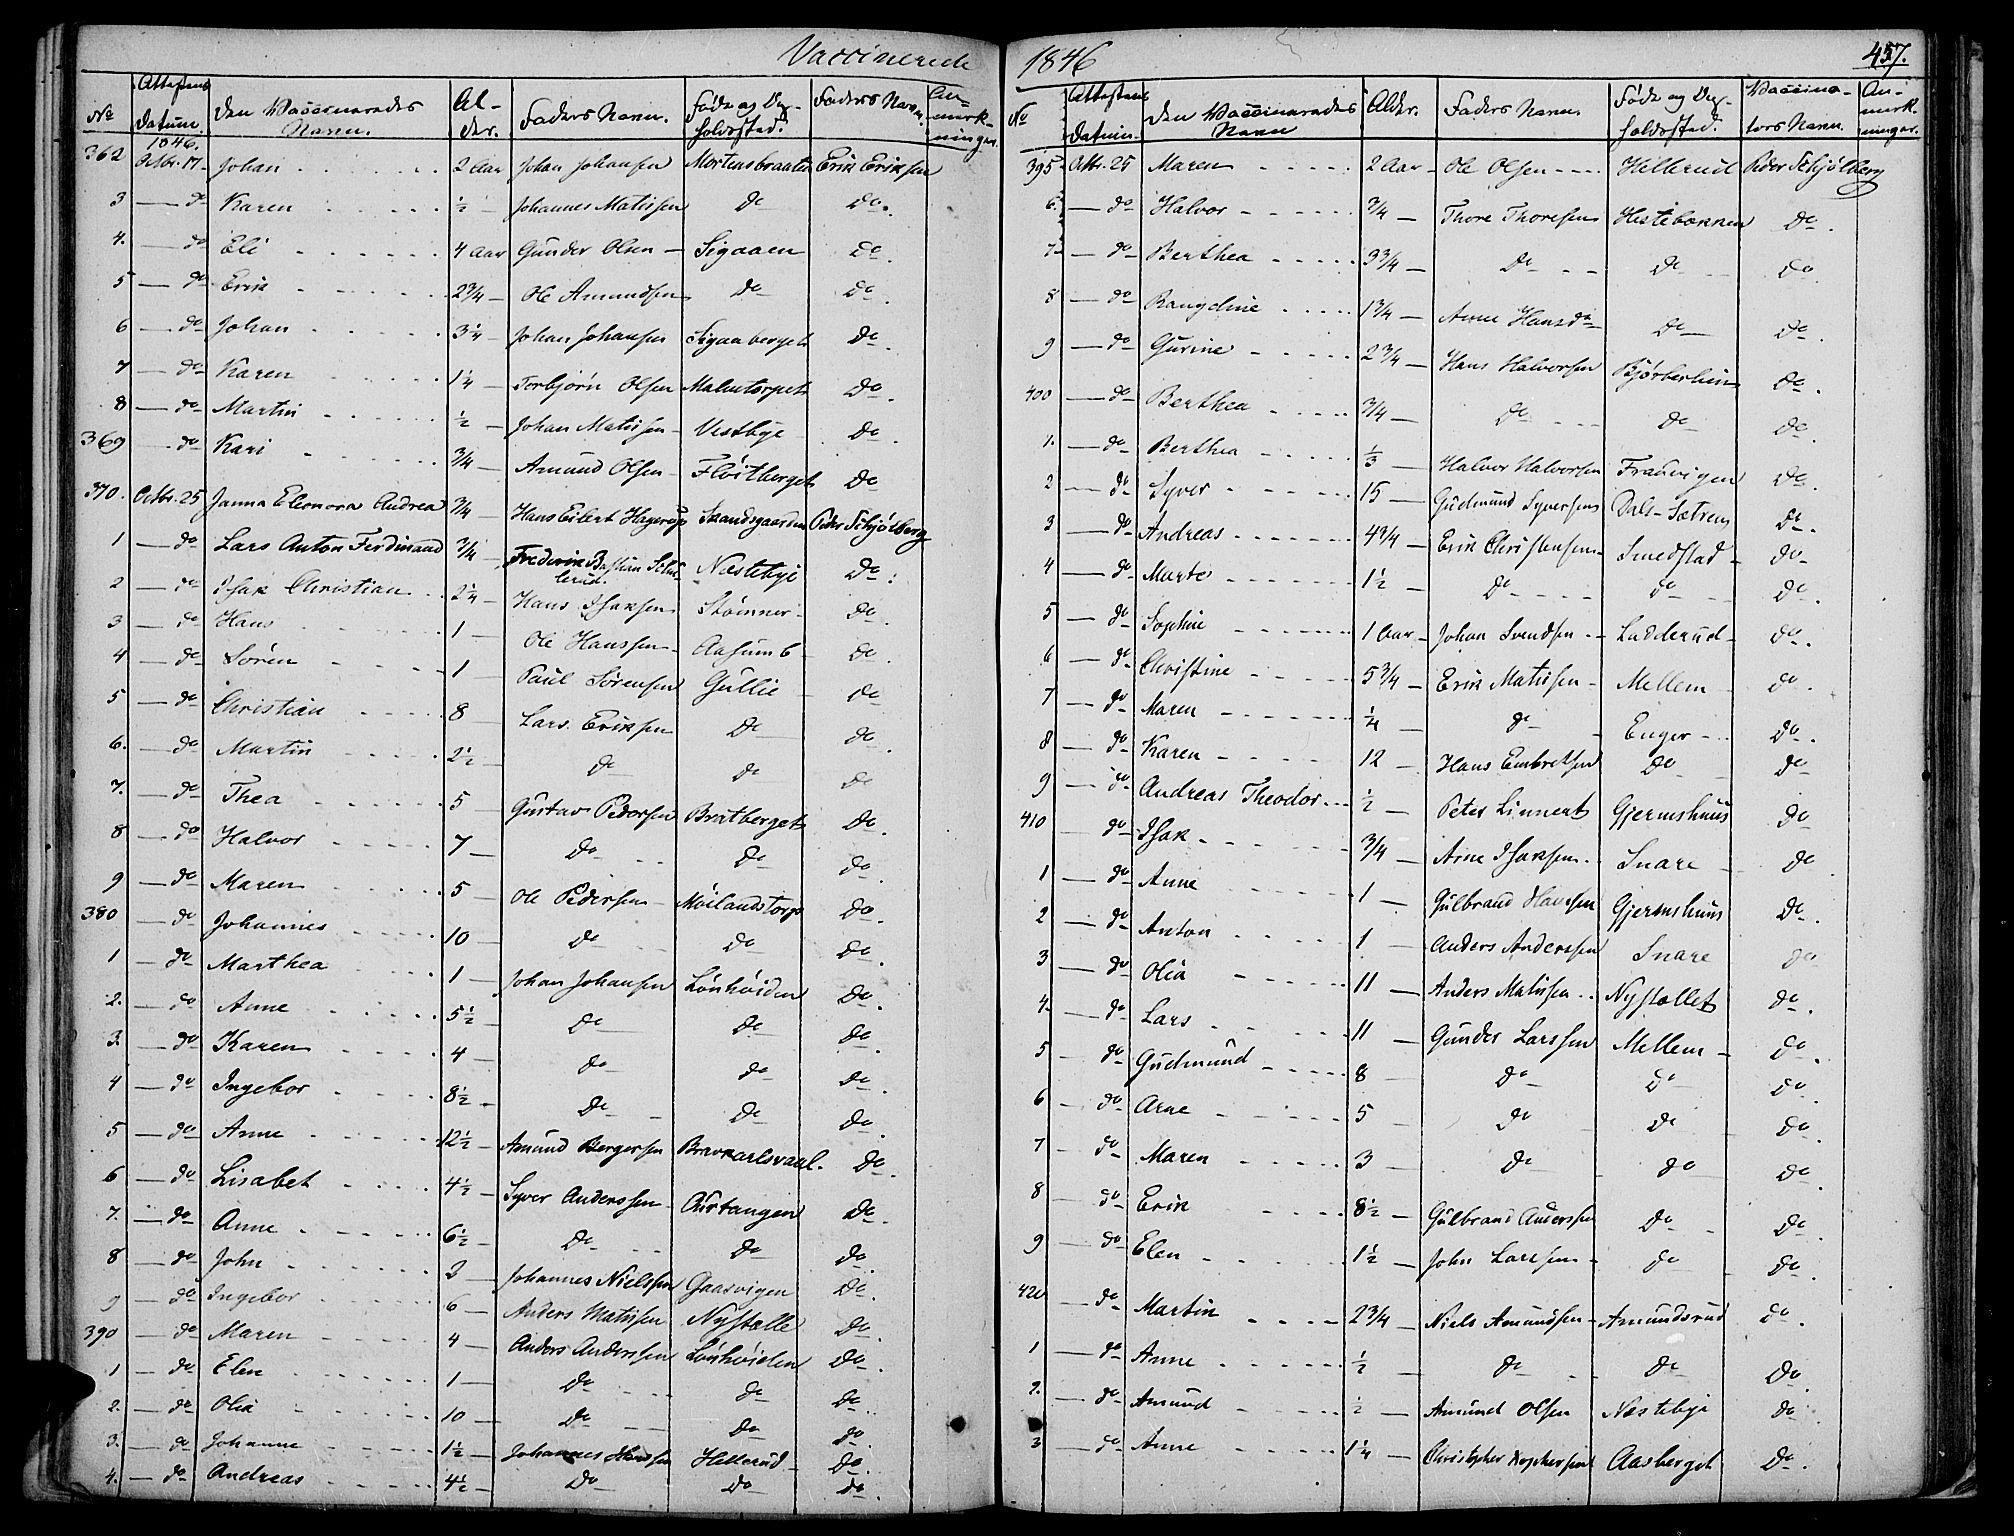 Vaccinerede
No Attestens Datum. Den Vaccineredes Navn. Al- der. Faders Navn. Føde og Op- holdssted. Faders Navn. An- mærk- ninger.
1846.
362 Octbr. 17. Johan 2 Aar Johan Johansen Mortensbraaten Erik Eriksen
3 — do Karen ½ — Johannes Matissen do do.
4. — do Eli 4 Aar Gunder Olsen — Sigaaen do.
5 — do Erik 2¾ — Ole Amundsen do do.
6 — do Johan 3¼ — Johan Johansen Sigaaberget do.
7 — do Karen 1¼ — Torbjørn Olsen Malmtorpet do.
8 — do Martin ½ — Johan Matissen — Vestbye do.
369 — do Kari ¾ — Amund Olsen — Fløitberget do.
370. Octbr. 25 Janna Eleonora Andrea ¾ — Hans Eilert Hagerup Strandsgaarden Peder Schjølberg
1 — do Lars Anton Ferdinand ¾ — Frederik Bastian Schu- lerud. Næstebye do.
2 — do Isak Christian 2¼ — Hans Isaksen Stømner do.
3 — do Hans 1 — Ole Hanssen — Aasum 6 do.
4 — do Søren 1 — Paul Sørensen Gullie do.
5 — do Christian 8 — Lars Eriksen do do.
6. — do Martin 2½ — do do do
7. — do Thea 5 — Gustav Pedersen Bratberget do.
8 — do Halvor 7 — do do do.
9 — do Maren 5 — Ole Pedersen — Moilandstorp do.
380 — do Johannes 10 — do do do.
1 — do Marthea 1 — Johan Johansen Lønhøiden do.
2. — do Anne 5½ — do do do.
3. — do Karen 4 — do do do.
4 — do Ingebor 8½ — do do do.
5 — do Anne 12½ — Amund Bergersen do.
6 — do Lisabet 4½ — Syver Anderssen — Austangen do.
7. — do Anne 6½ — do do do.
8 — do John 2 — Johannes Nielssen Gaasvigen do.
9 — do Ingebor 6 — Anders Matissen Nystælle do.
390 — do Maren 4 — Anders Anderssen Lønhøiden do.
1 — do Elen 1 — do do do.
2. — do Olia 10 — do do do.
3. — do Johanne 1½ — Johannes Hansen Hellerud — do.
4. — do Andreas 4½ — do do do.
1846 457.
No Attestens Datum. Den Vaccineredes Navn Alder. Faders Navn. Føde og Op- holdssted. Vaccina- tors Navn. An- mærk- ninger.
395 Octbr. 25 Maren 2 Aar — Ole Olsen Hellerud Peder Schjølberg
6. — do Halvor ¾ — Thore Thoresen Hestebækken do.
7 — do Berthea 3¾ — do do do
8 — do Rangdine 1¾ — Arne Hansd: do do.
9 — do Gurine 2¾ — Hans Halvorsen do.
400 — do Berthea ¾ — do do do.
1. — do Berthea ⅓ — Halvor Halvorsen Frausvigen do.
2 — do Syver 15 — Gudmund Syversen Dals-Sætren do.
3 — do Andreas 4¾ — Erik Christensen Smedstad — do
4 — do Marte 1½ — do do do.
5 — do Sophie 1 Aar — Johan Svendsen Ludderud do.
6 — do Christine 5¾ — Erik Matissen — Mellem do.
7 — do Maren ¼ — do Enger — do.
8 — do Karen 12 — Hans Embretsen do do
9 — do Andreas Theodor ½ — Peter Linnert Gjermshuus do
410 — do Isak ¾ — Arne Isaksen Snare do
1 — do Anne 1 — Gulbrand Hanssen Gjermshuus do.
2 — do Anton 1 — Anders Anderssen Snare do
3 — do Olia 11 — Anders Matissen Nystællet do.
4. — do Lars 11 — Gunder Larssen Mellem — do.
5 — do Gudmund 8 — do do do.
6 — do Arne 5 do do do.
7 — do Maren 3 do do do.
8 — do Erik 8½ — Gulbrand Anderssen do do.
9 — do Elen 1½ — John Larssen — do do.
420 — do Martin 2¾ — Niels Amundsen — Amundsrud do.
1 — do Anne ½ — do do do.
2. — do Amund ½ — Amund Olsen Næstebye do
3 — do Anne 1¼ — Christopher Aasberget do.